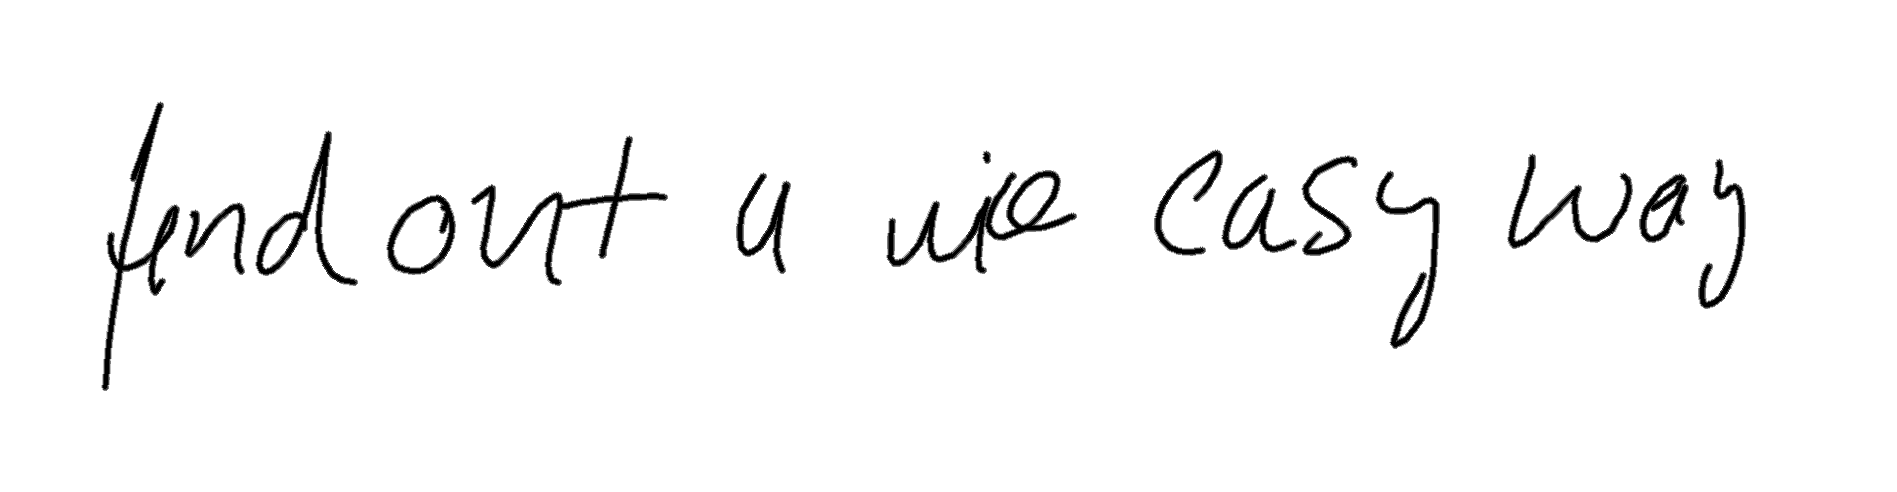 find out a nice easy way